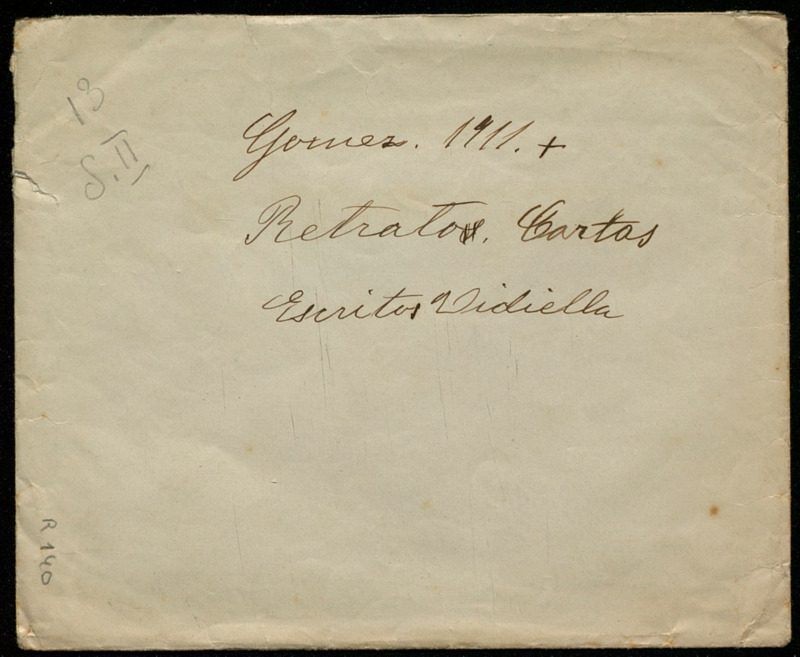 13
S.II
Gomez. 1911. +
Retratos. Cartas
Escritos Vidiella
R 140